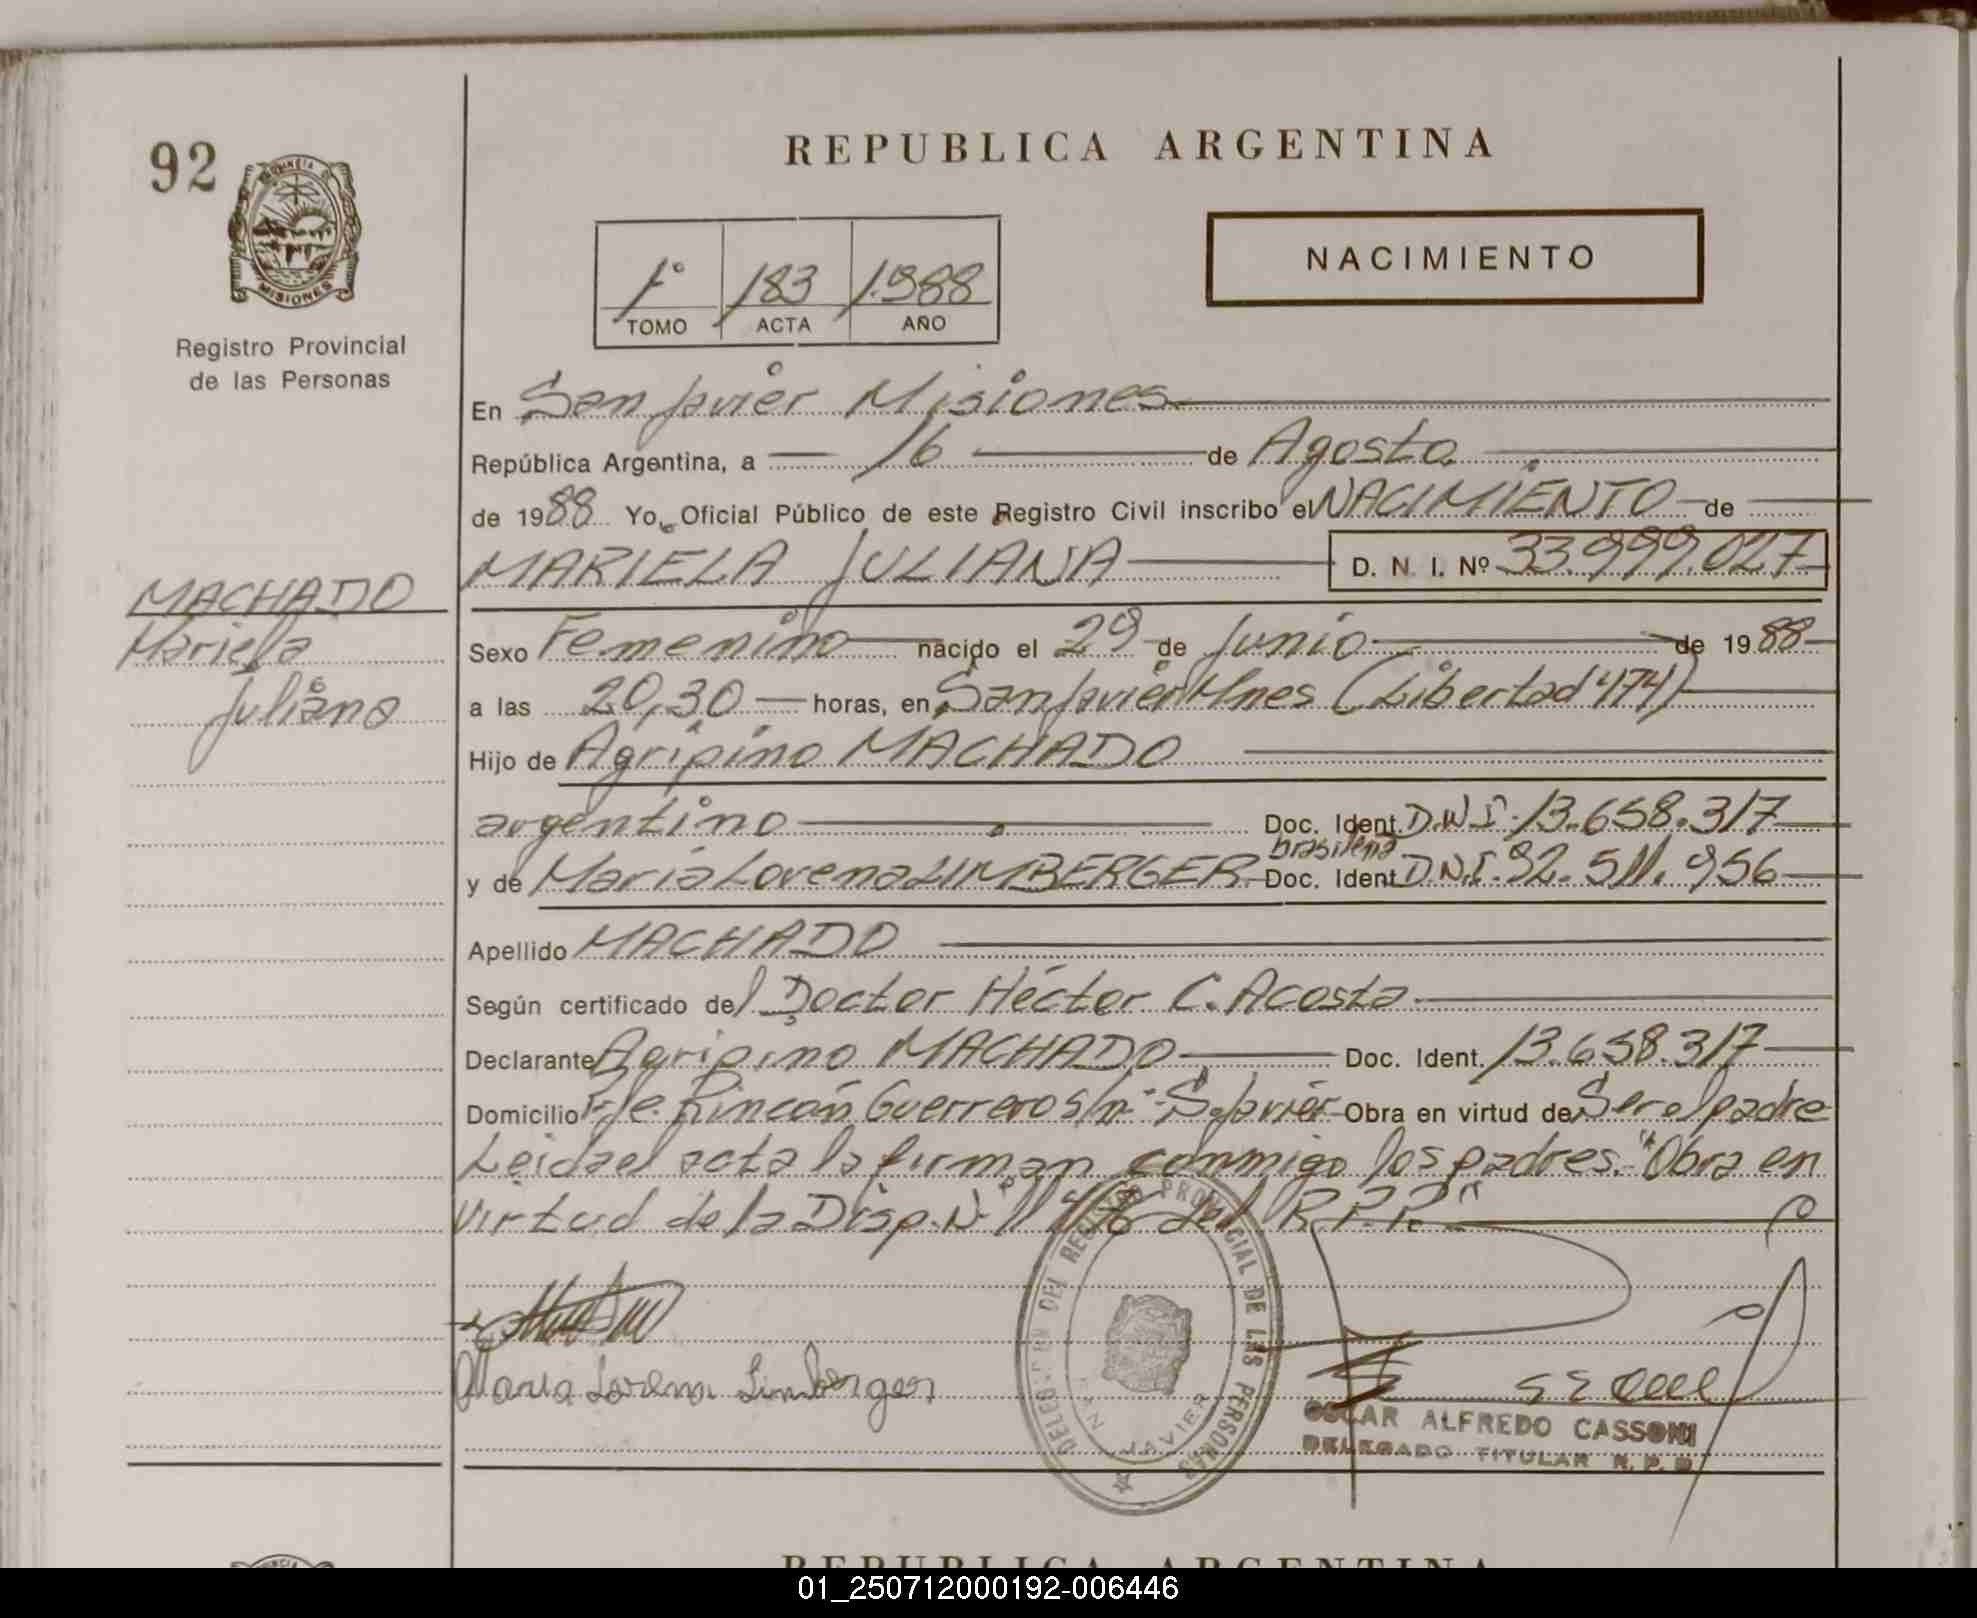 92
PROVINCIA DE
MISIONES
Registro Provincial
de las Personas
MACHADO
Mariela
Juliana
REPUBLICA ARGENTINA
1º 183 1.988
TOMO ACTA AÑO
NACIMIENTO
En San Javier Misiones
República Argentina, a 16 de Agosto
de 1988 Yo, Oficial Público de este Registro Civil inscribo el NACIMIENTO de
MARIELA JULIANA D. N. I. Nº 33.999.027
Sexo Femenino nacido el 29 de Junio de 1988
a las 20,30 horas, en San Javier Mnes (Libertad 474)
Hijo de Agripino MACHADO
argentino Doc. Ident. D.N.I. 13.658.317
brasileña
y de María Lorena LIMBERGER Doc. Ident. D.N.I. 92.511.956
Apellido MACHADO
Según certificado del Doctor Héctor C. Acosta
Declarante Agripino MACHADO Doc. Ident. 13.658.317
Domicilio Pje. Rincón Guerrero s/nº S. Javier Obra en virtud de Ser el padre
Leida el acta la firman conmigo los padres. "Obra en
virtud de la Disp. Nº del R.P.P."
Maria Lorena Limberger
DELEGACION DEL REGISTRO PROVINCIAL DE LAS PERSONAS
SAN JAVIER
OSCAR ALFREDO CASSONI
DELEGADO TITULAR R. P. P.
REPUBLICA ARGENTINA
01_250712000192-006446